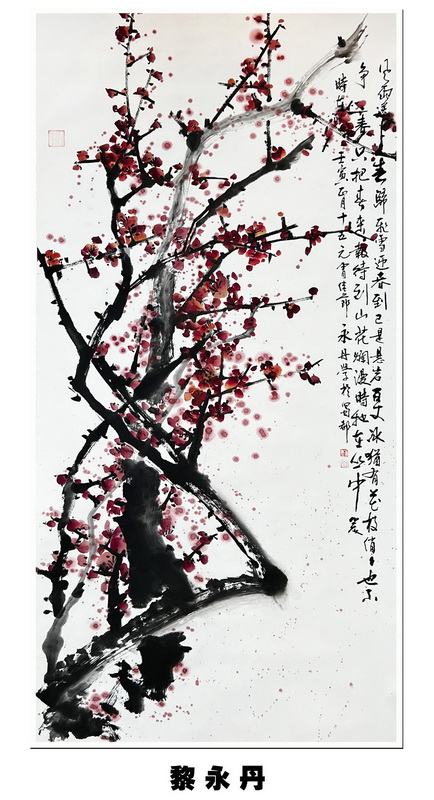 風雨送春歸飛雪迎春到已是悬岩百丈冰猶有花枝俏〻也不
争春只把春来報待到山花爛漫時她在丛中笑
時在壬寅正月十五元宵佳節永丹学於蜀都
黎永丹